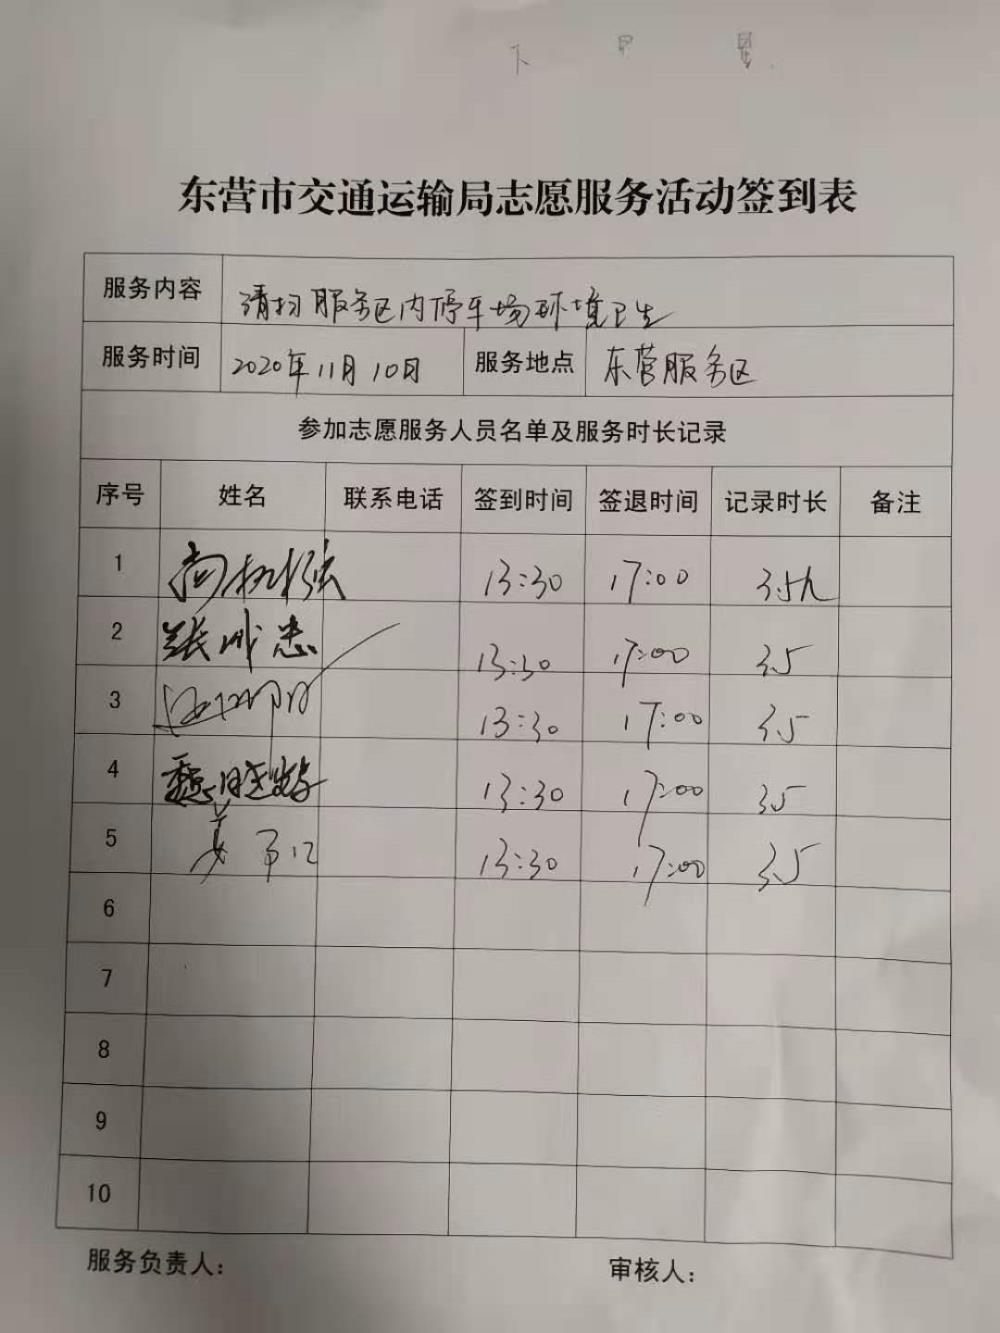 东营市交通运输局志愿服务活动签到表
服务内容 清扫服务区内停车场环境卫生
服务时间 2020年11月10日 服务地点 东营服务区
参加志愿服务人员名单及服务时长记录
序号 姓名 联系电话 签到时间 签退时间 记录时长 备注
1 13:30 17:00 3.5h
2 张 忠 13:30 17:00 3.5
3 13:30 17:00 3.5
4 13:30 17:00 3.5
5 13:30 17:00 3.5
6
7
8
9
10
服务负责人： 审核人：